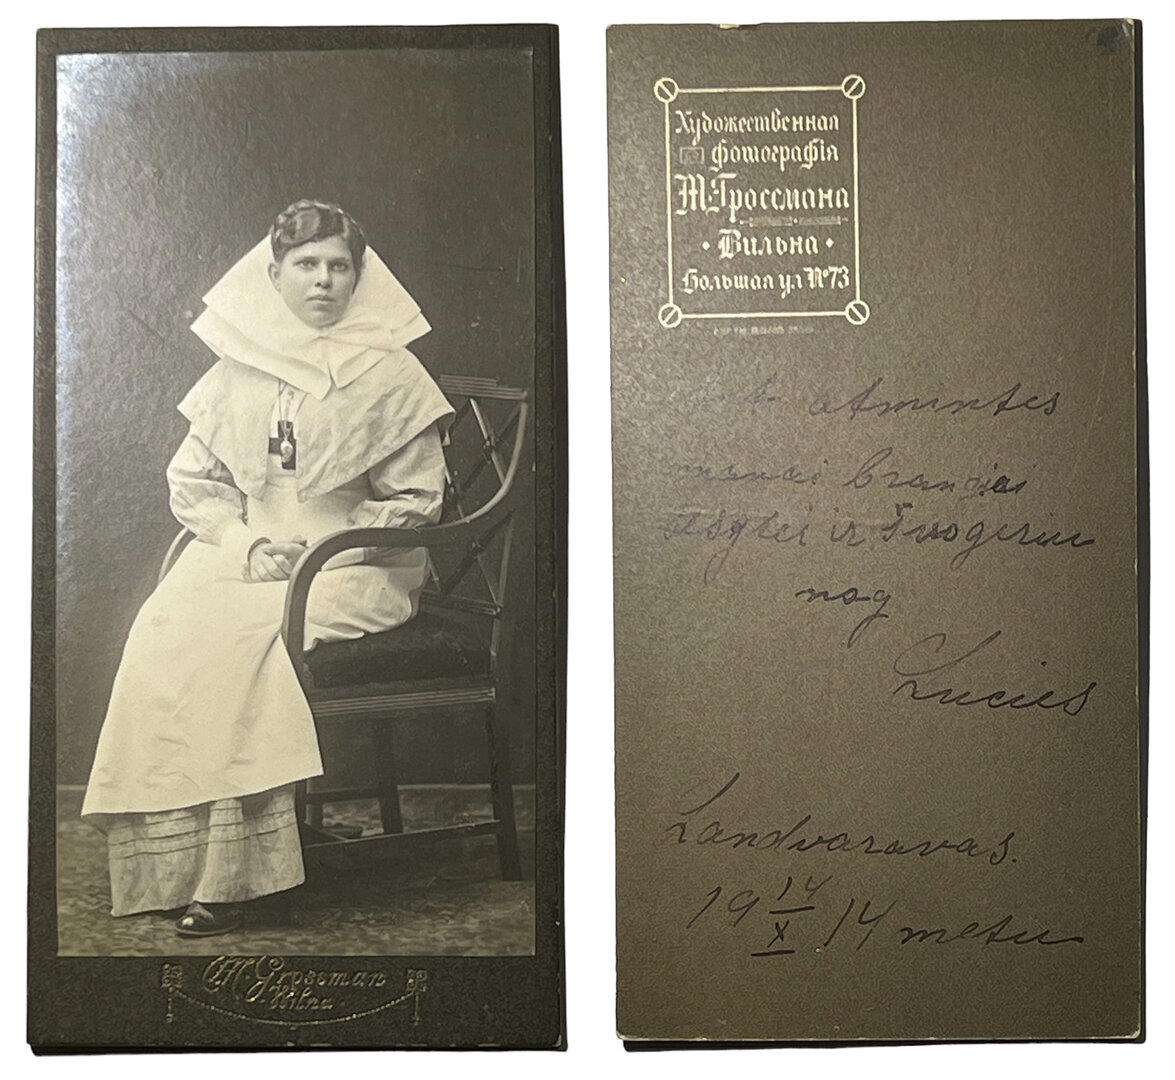 M. Grossman
Wilna
Художественная
фотографія
М. Гроссмана
Вильна
Большая ул №73
atmintes
manai brangiai
sesytei ir Švogeriui
nog
Lucies
Landvaravas.
19 14/X 14 metu